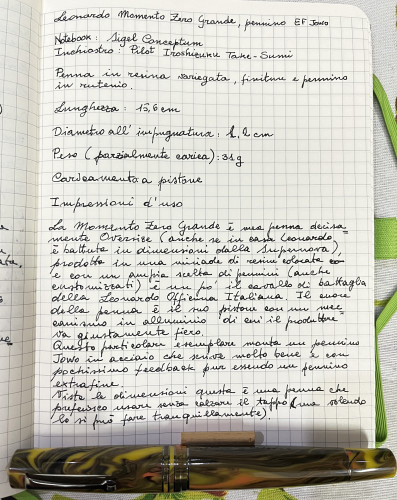 Leonardo Momento Zero Grande, pennino EF Jowo
Notebook: Sigel Conceptum
Inchiostro: Pilot Iroshizuku Take-Sumi
Penna in resina variegata, finiture e pennino
in rutenio.
Lunghezza: 15,6 cm
Diametro all'impugnatura: 1,2 cm
Peso (parzialmente carica): 31g
Caricamento a pistone
Impressioni d'uso
La Momento Zero Grande è una penna decisa=
mente Oversize (anche se in casa Leonardo
è battuta in dimensioni dalla Supernova),
prodotta in una miriade di resine colorate
e con un'ampia scelta di pennini (anche
customizzati) è un po' il cavallo di battaglia
della Leonardo Officina Italiana. Il cuore
della penna è il suo pistone con un mec=
canismo in alluminio di cui il produttore
va giustamente fiero.
Questo particolare esemplare monta un pennino
Jowo in acciaio che scrive molto bene e con
pochissimo feedback pur essendo un pennino
extrafine.
Viste le dimensioni questa è una penna che
preferisco usare senza calzare il tappo (ma volendo
lo si può fare tranquillamente).